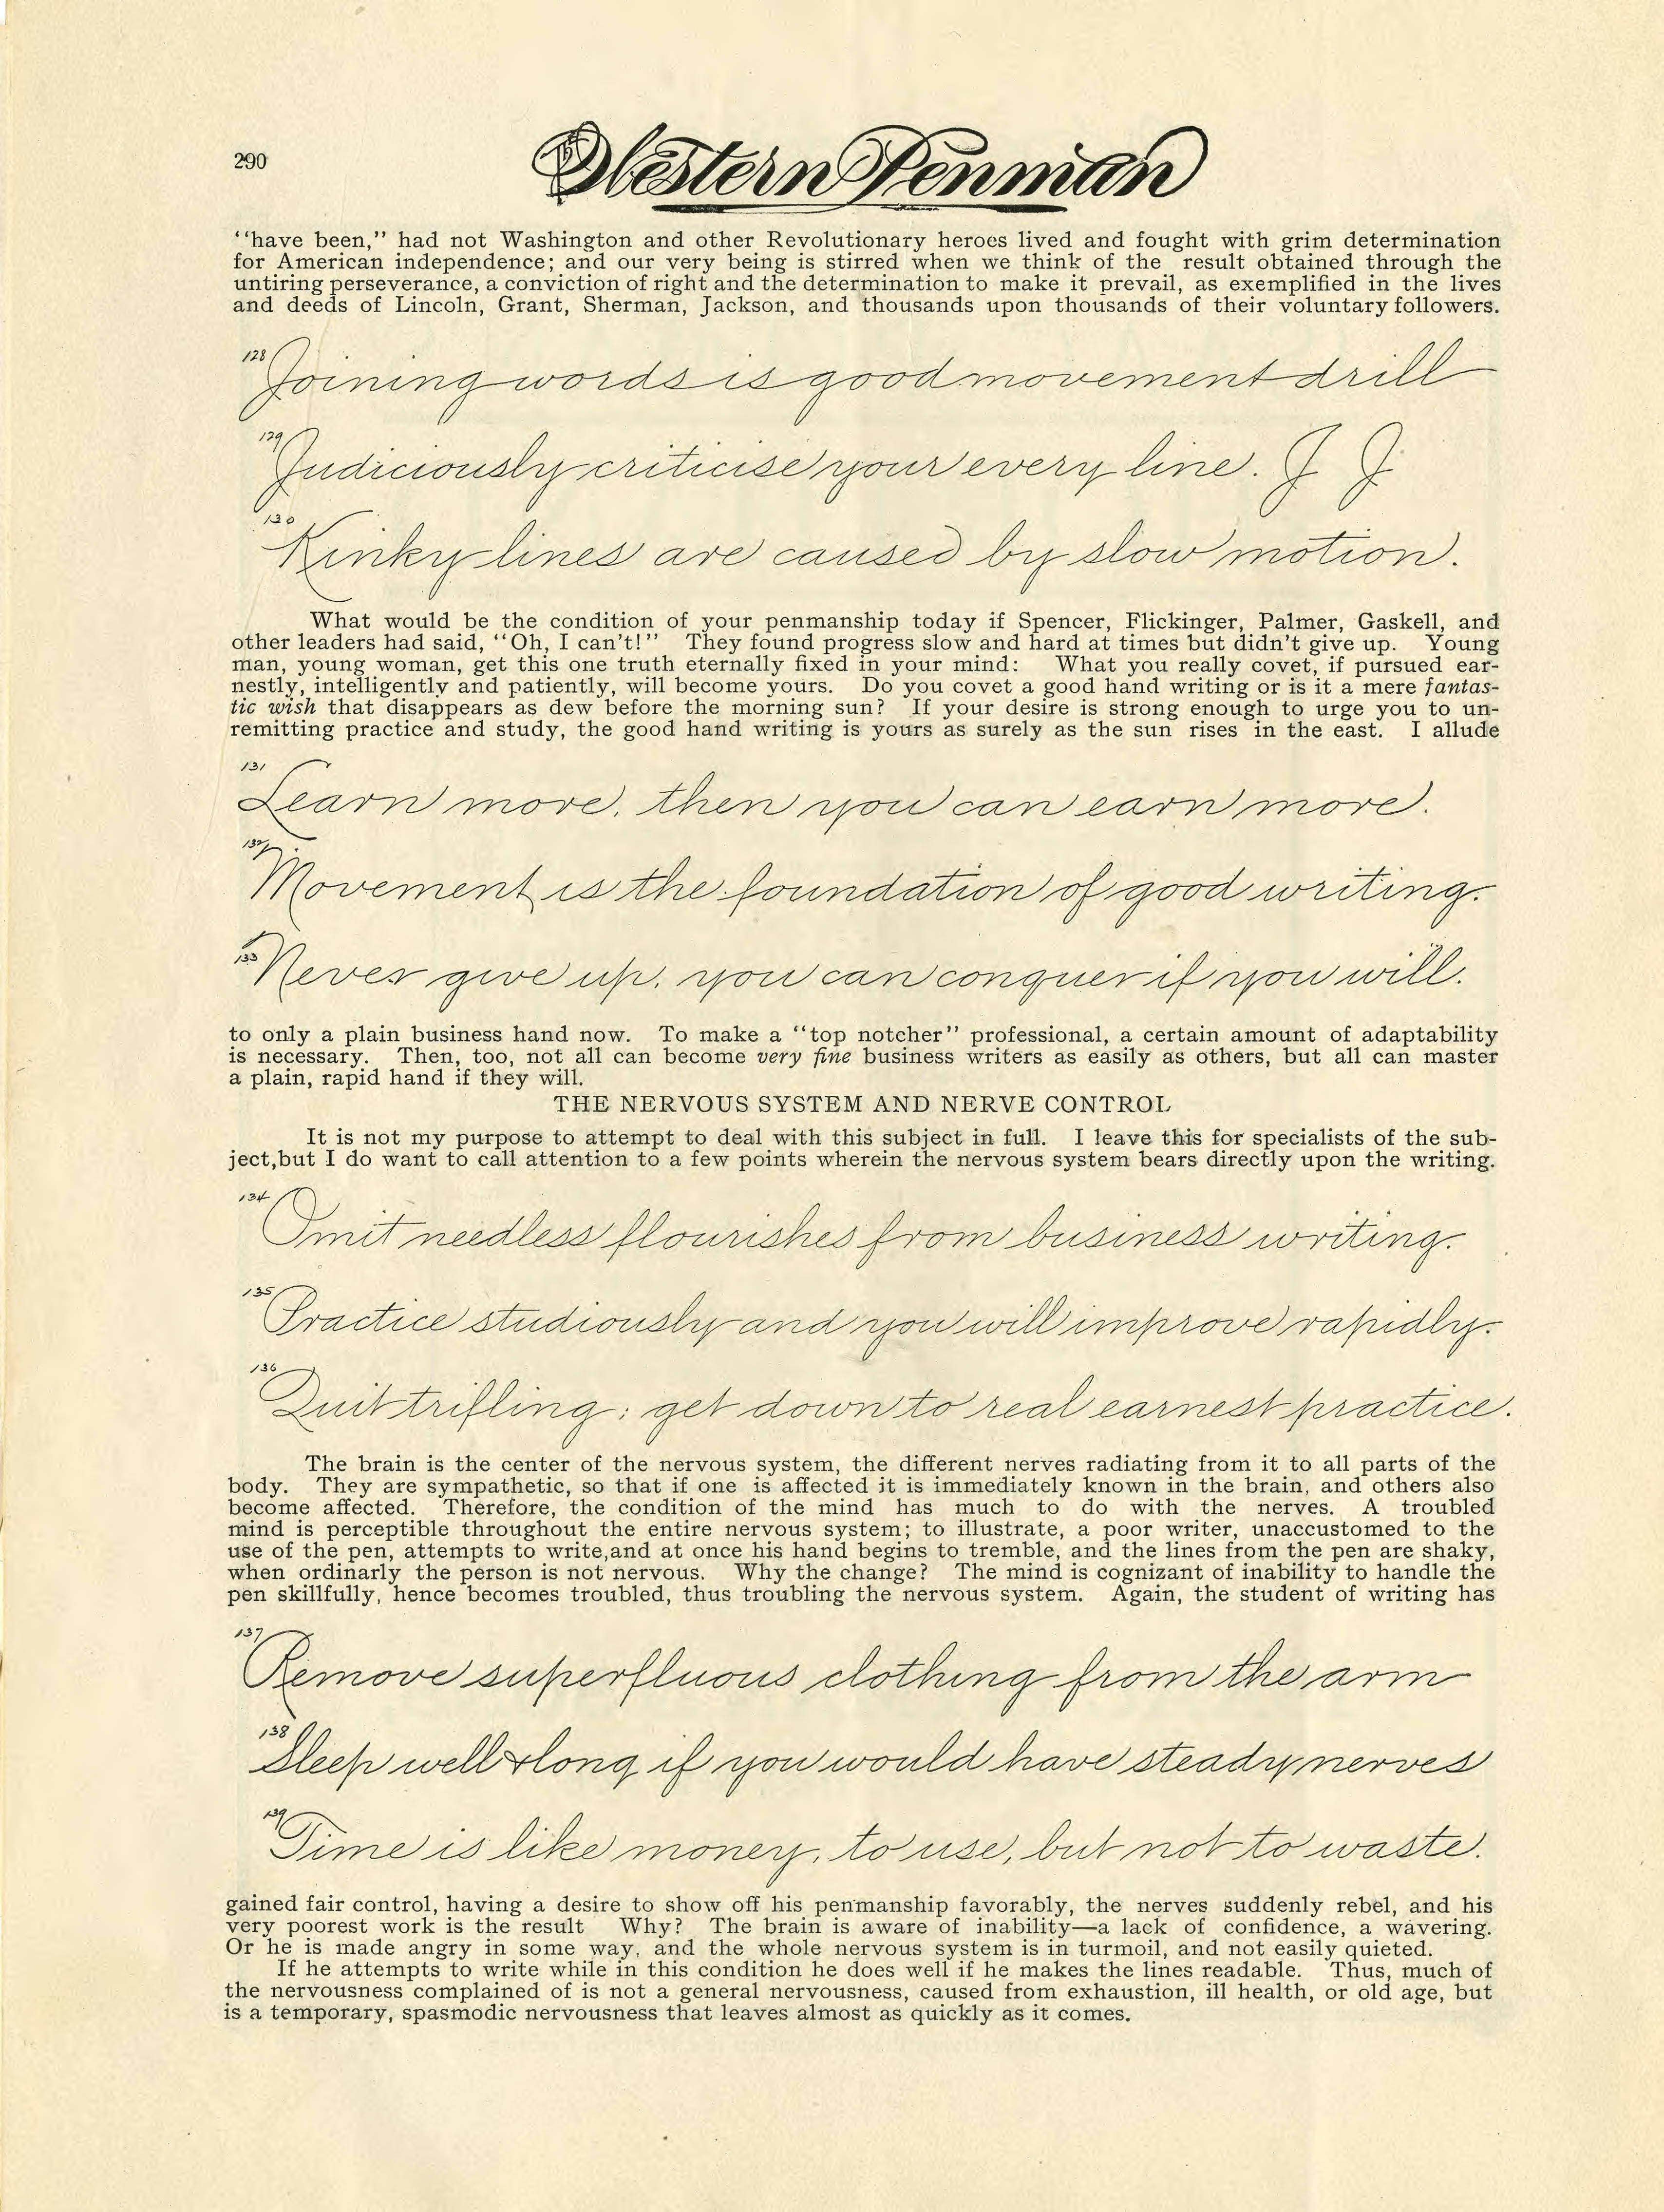 290
Western Penman
"have been," had not Washington and other Revolutionary heroes lived and fought with grim determination
for American independence; and our very being is stirred when we think of the result obtained through the
untiring perseverance, a conviction of right and the determination to make it prevail, as exemplified in the lives
and deeds of Lincoln, Grant, Sherman, Jackson, and thousands upon thousands of their voluntary followers.
128 Joining words is good movement drill
129 Judiciously criticise your every line. J J
130 Kinky lines are caused by slow motion.
What would be the condition of your penmanship today if Spencer, Flickinger, Palmer, Gaskell, and
other leaders had said, "Oh, I can't!" They found progress slow and hard at times but didn't give up. Young
man, young woman, get this one truth eternally fixed in your mind: What you really covet, if pursued ear-
nestly, intelligently and patiently, will become yours. Do you covet a good hand writing or is it a mere fantas-
tic wish that disappears as dew before the morning sun? If your desire is strong enough to urge you to un-
remitting practice and study, the good hand writing is yours as surely as the sun rises in the east. I allude
131 Learn more, then you can earn more.
132 Movement is the foundation of good writing.
133 Never give up, you can conquer if you will.
to only a plain business hand now. To make a "top notcher" professional, a certain amount of adaptability
is necessary. Then, too, not all can become very fine business writers as easily as others, but all can master
a plain, rapid hand if they will.
THE NERVOUS SYSTEM AND NERVE CONTROL
It is not my purpose to attempt to deal with this subject in full. I leave this for specialists of the sub-
ject,but I do want to call attention to a few points wherein the nervous system bears directly upon the writing.
134 Omit needless flourishes from business writing.
135 Practice studiously and you will improve rapidly.
136 Quit trifling; get down to real earnest practice.
The brain is the center of the nervous system, the different nerves radiating from it to all parts of the
body. They are sympathetic, so that if one is affected it is immediately known in the brain, and others also
become affected. Therefore, the condition of the mind has much to do with the nerves. A troubled
mind is perceptible throughout the entire nervous system; to illustrate, a poor writer, unaccustomed to the
use of the pen, attempts to write,and at once his hand begins to tremble, and the lines from the pen are shaky,
when ordinarly the person is not nervous. Why the change? The mind is cognizant of inability to handle the
pen skillfully, hence becomes troubled, thus troubling the nervous system. Again, the student of writing has
137 Remove superfluous clothing from the arm
138 Sleep well & long if you would have steady nerves
139 Time is like money, to use, but not to waste.
gained fair control, having a desire to show off his penmanship favorably, the nerves suddenly rebel, and his
very poorest work is the result Why? The brain is aware of inability—a lack of confidence, a wavering.
Or he is made angry in some way, and the whole nervous system is in turmoil, and not easily quieted.
If he attempts to write while in this condition he does well if he makes the lines readable. Thus, much of
the nervousness complained of is not a general nervousness, caused from exhaustion, ill health, or old age, but
is a temporary, spasmodic nervousness that leaves almost as quickly as it comes.